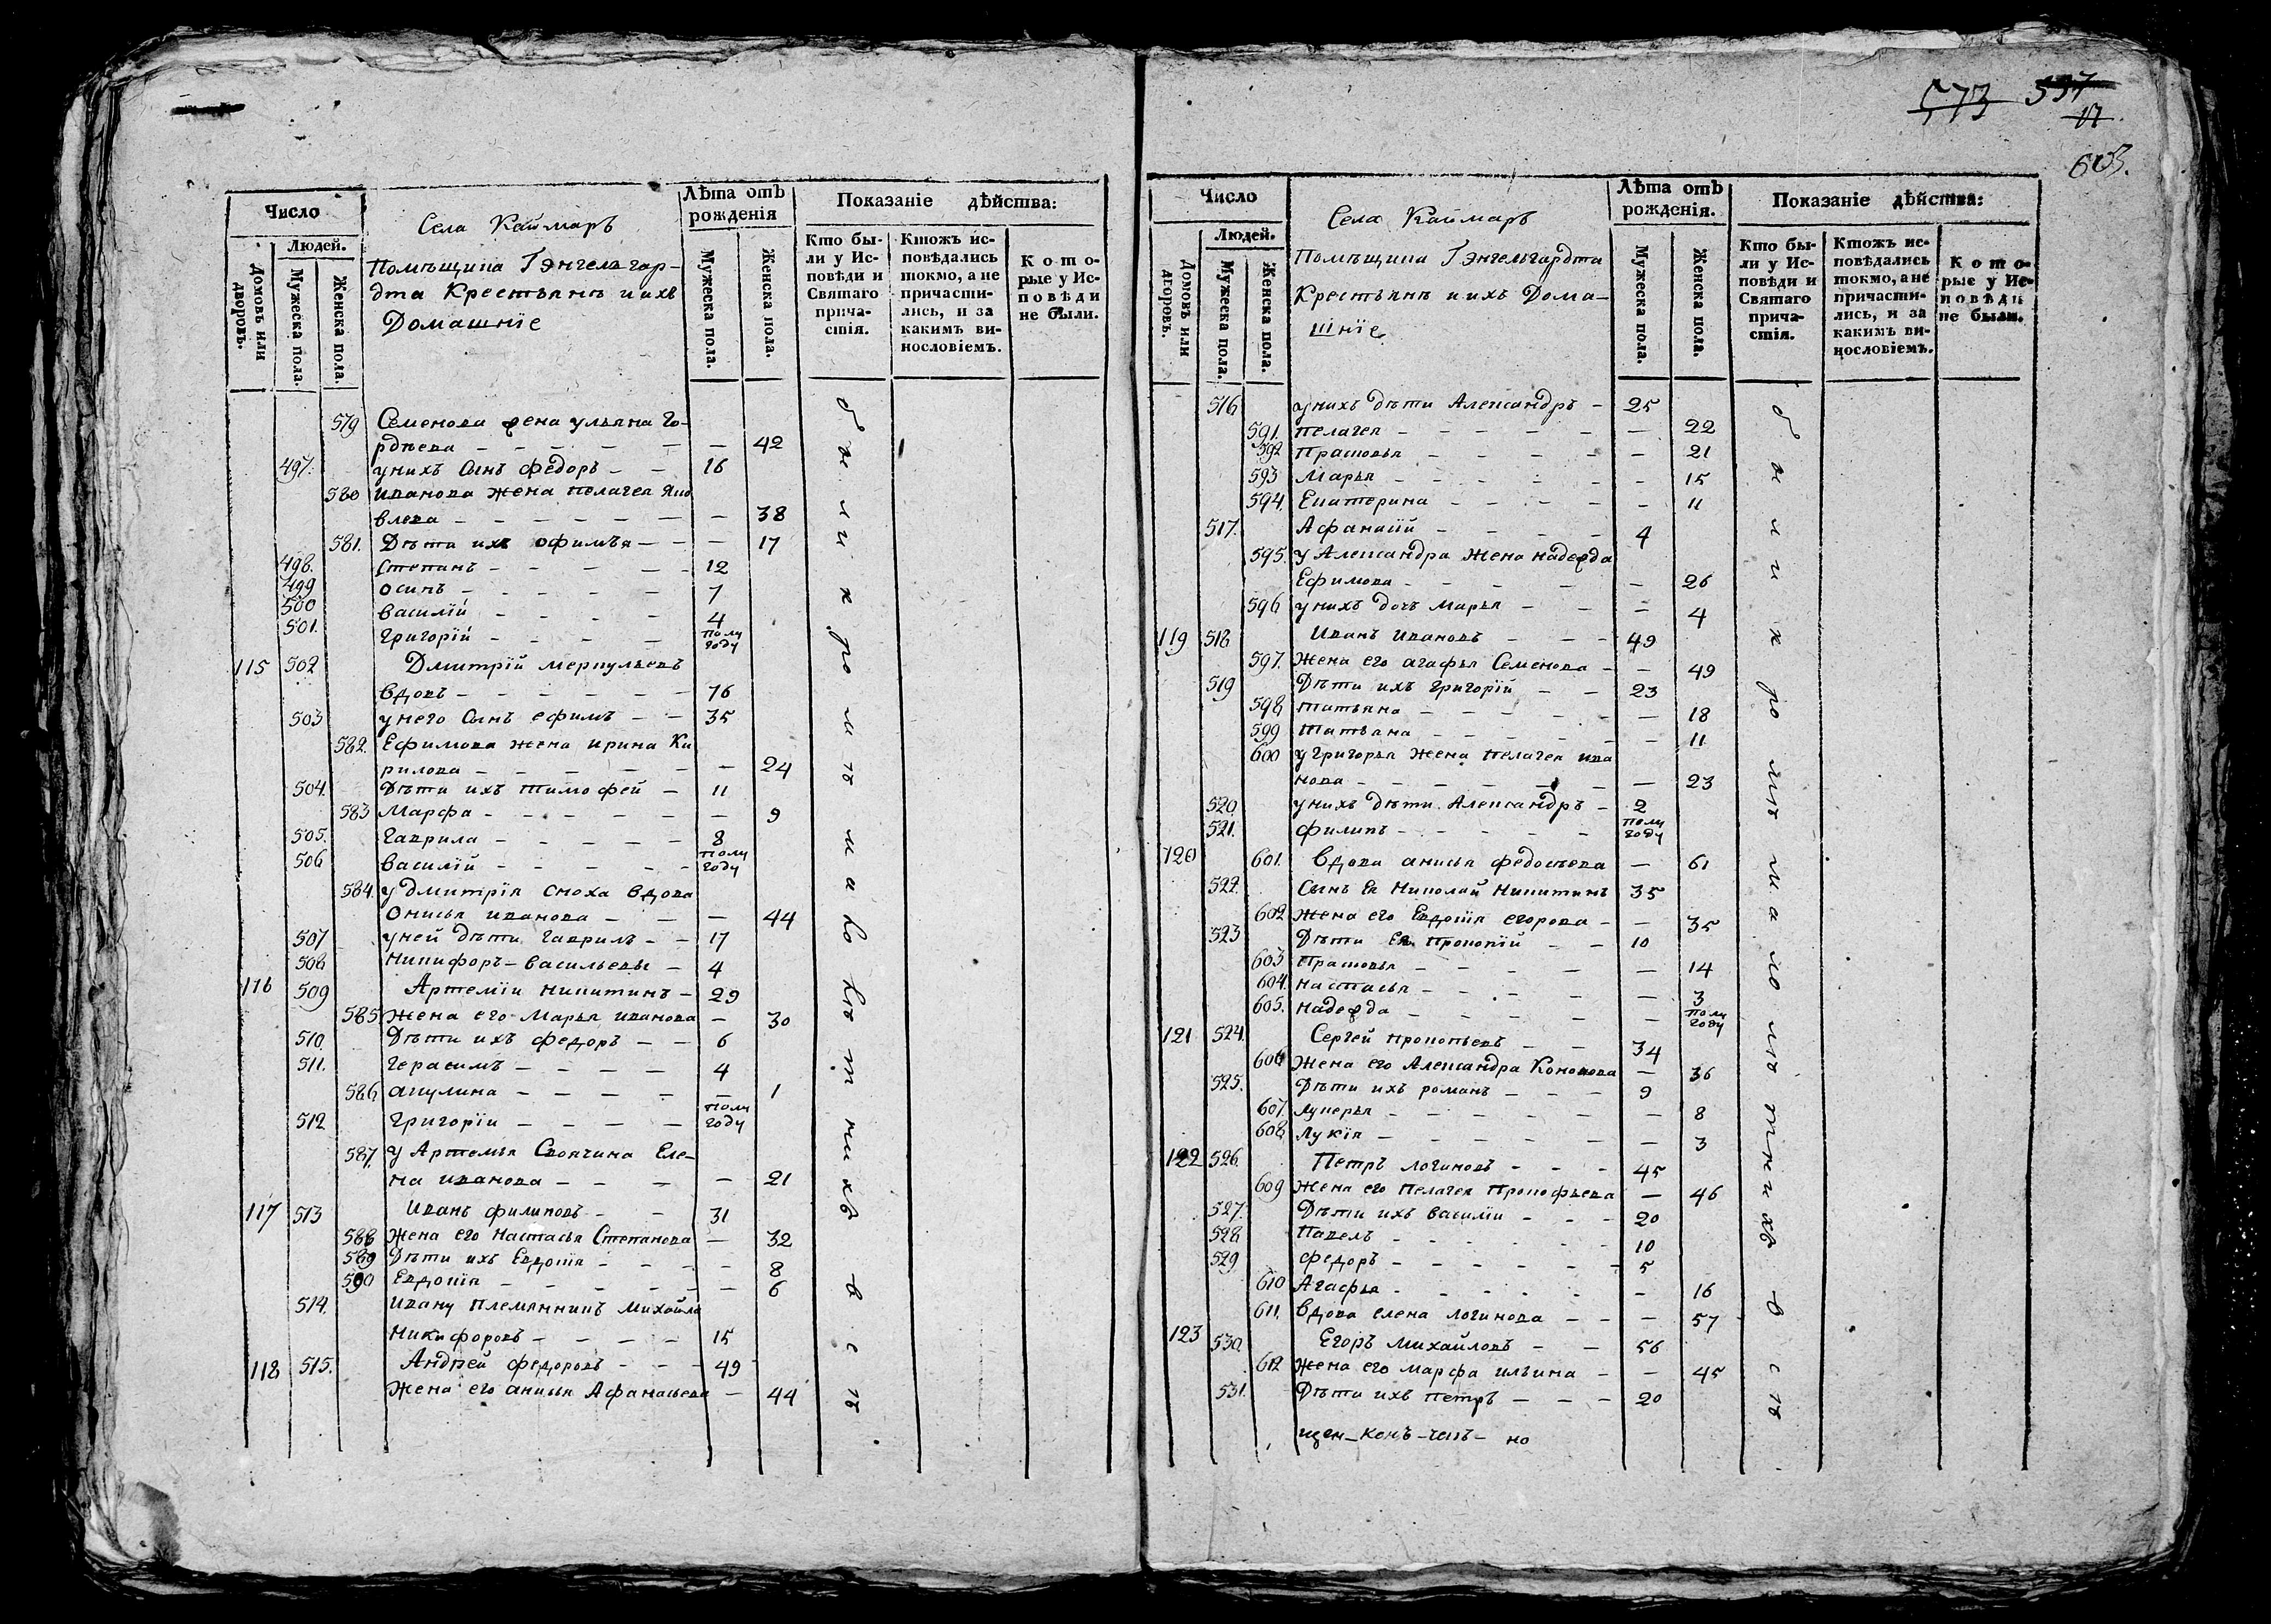 573 537
17
603.
Число
Людей.
Домовъ или дворовъ.
Мужеска пола.
Женска пола.
Села Каймаръ
Помѣщика Гэнгельгар-
дта Крестьянъ и ихъ
Домашнїе
Лѣта отъ рожденія
Мужеска пола.
Женска пола.
Показаніе дѣйства:
Кто бы-
ли у Ис-
повѣди и
Святаго
прича-
стія.
Ктожъ ис-
повѣдались
токмо, а не
причасти-
лись, и за
какимъ ви-
нословіемъ.
Кото-
рые у Ис-
повѣди
не были.
579 Семенова жена ульяна Го-
рдѣева — 42
497. у нихъ Сынъ федоръ — 16
580 Иванова жена пелагея Яко
влева — 38
581. Дѣти ихъ офимья — 17
498. Степанъ — 12
499 осипъ — 7
500 василїй — 4
501. григорїй — полу году
115 502 Дмитрїй меркульевъ
вдовъ — 76
503 у него Сынъ ефимъ — 35
582. Ефимова жена ирина Ки
рилова — 24
504. Дѣти ихъ тимофей — 11
583 Марфа — 9
505. гаврила — 8
506 василїй — полу году
584. у дмитрїя сноха вдова
Онисья иванова — 44
507 у ней дѣти гаврилъ — 17
508 Никифоръ — васильевы — 4
116 509 Артемїи никитинъ — 29
585 Жена его Марья иванова — 30
510. Дѣти ихъ федоръ — 6
511. герасимъ — 4
586 акулина — 1
512 григорїи — полу году
587. У Артемья Своячина Еле-
на иванова — 21
117 513 Иванъ филиповъ — 31
588 Жена его Настасья Степанова — 32
589 Дѣти ихъ Евдокїя — 8
590 Евдокїя — 6
514. Ивану племянникъ михайла
Никифоровъ — 15
118 515. Андрей федоровъ — 49
Жена его анисья Афанасьева — 44
были къ ромитъ малолѣтнихъ всѣ
Число
Людей.
Домовъ или дворовъ.
Мужеска пола.
Женска пола.
Села Каймаръ
Помѣщика Гэнгельгардта
Крестьянъ и ихъ Дома-
шнїе
Лѣта отъ рожденія.
Мужеска пола.
Женска пола.
Показаніе дѣйства:
Кто бы-
ли у Ис-
повѣди и
Святаго
прича-
стія.
Ктожъ ис-
повѣдались
токмо, а не
причасти-
лись, и за
какимъ ви-
нословіемъ.
Кото-
рые у Ис-
повѣди
не были.
516 у нихъ дѣти Александръ — 25
591. пелагея — 22
592 Прасковья — 21
593 Марья — 15
594. Екатерина — 11
517. Афанасїй — 4
595. у Александра жена надежда
Ефимова — 26
596 у нихъ дочь марья — 4
119 518 Иванъ ивановъ — 49
597. Жена его агафья Семенова — 49
519 Дѣти ихъ григорїй — 23
598 татьяна — 18
599 татьяна — 11
600 у григорья жена пелагея ива
нова — 23
520. у нихъ дѣти Александръ — 2
521. филипъ — полу году
120 601. вдова анисья федосѣева — 61
522. Сынъ Ея Николай Никитинъ 35
602 жена его Евдокїя егорова — 35
523 Дѣти Ея прокопїй — 10
603 Прасковья — 14
604. настасья — 3
605. надежда — полу году
121 524. Сергей прокопьевъ — 34
606 Жена его Александра Кононова — 36
525. Дѣти ихъ романъ — 9
607. лукерья — 8
608 лукїя — 3
122 526. Петръ логиновъ — 45
609 Жена его пелагея прокофьева — 46
527. Дѣти ихъ василїи — 20
528. павелъ — 10
529 федоръ — 5
610 Агафья — 16
611. вдова елена логинова — 57
123 530. Егоръ михайловъ — 56
612 жена его марфа ильина — 45
531. Дѣти ихъ петръ — 20
были кромѣ малолѣтнихъ всѣ